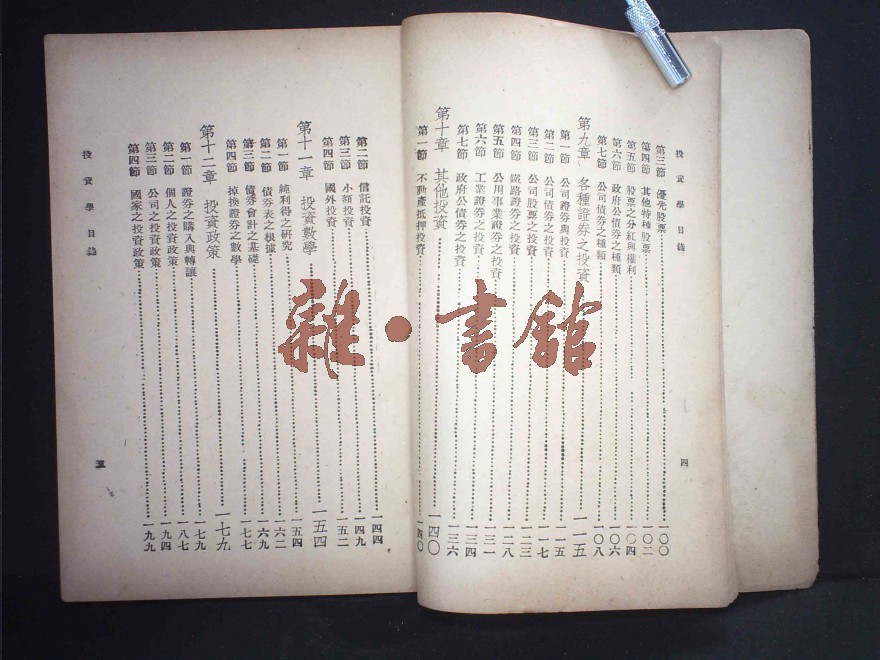 投資學目錄
四
第三節 優先股票……一〇〇
第四節 其他特種股票……一〇二
第五節 股票之分紅與權利……一〇四
第六節 政府公債券之種類……一〇六
第七節 公司債券之種類……一〇八
第九章 各種證券之投資……一一五
第一節 公司證券與投資……一一五
第二節 公司債券之投資……一一七
第三節 公司股票之投資……一二三
第四節 鐵路證券之投資……一二八
第五節 公用事業證券之投資……一三一
第六節 工業證券之投資……一三四
第七節 政府公債券之投資……一三六
第十章 其他投資……一四〇
第一節 不動產抵押投資……一四〇
第二節 信託投資……一四四
第三節 小額投資……一四九
第四節 國外投資……一五二
第十一章 投資數學……一五四
第一節 純利得之研究……一五四
第二節 債券表之根據……一六二
第三節 債券會計之基礎……一六九
第四節 掉換證券之數學……一七七
第十二章 投資政策……一七九
第一節 證券之購入與轉讓……一七九
第二節 個人之投資政策……一八七
第三節 公司之投資政策……一九四
第四節 國家之投資政策……一九九
投資學目錄
五
雜·書館